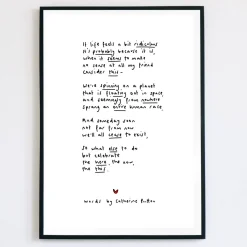 If life feels a bit ridiculous
It's probably because it is,
when it seems to make
no sense at all my friend
Consider this -
We're spinning on a planet
that is floating out in space
and seemingly from nowhere
sprang an entire human race
And someday soon
not far from now
we'll all cease to exist,
So what else to do
but celebrate
the here, the now,
the this.
words by Catherine Prutton